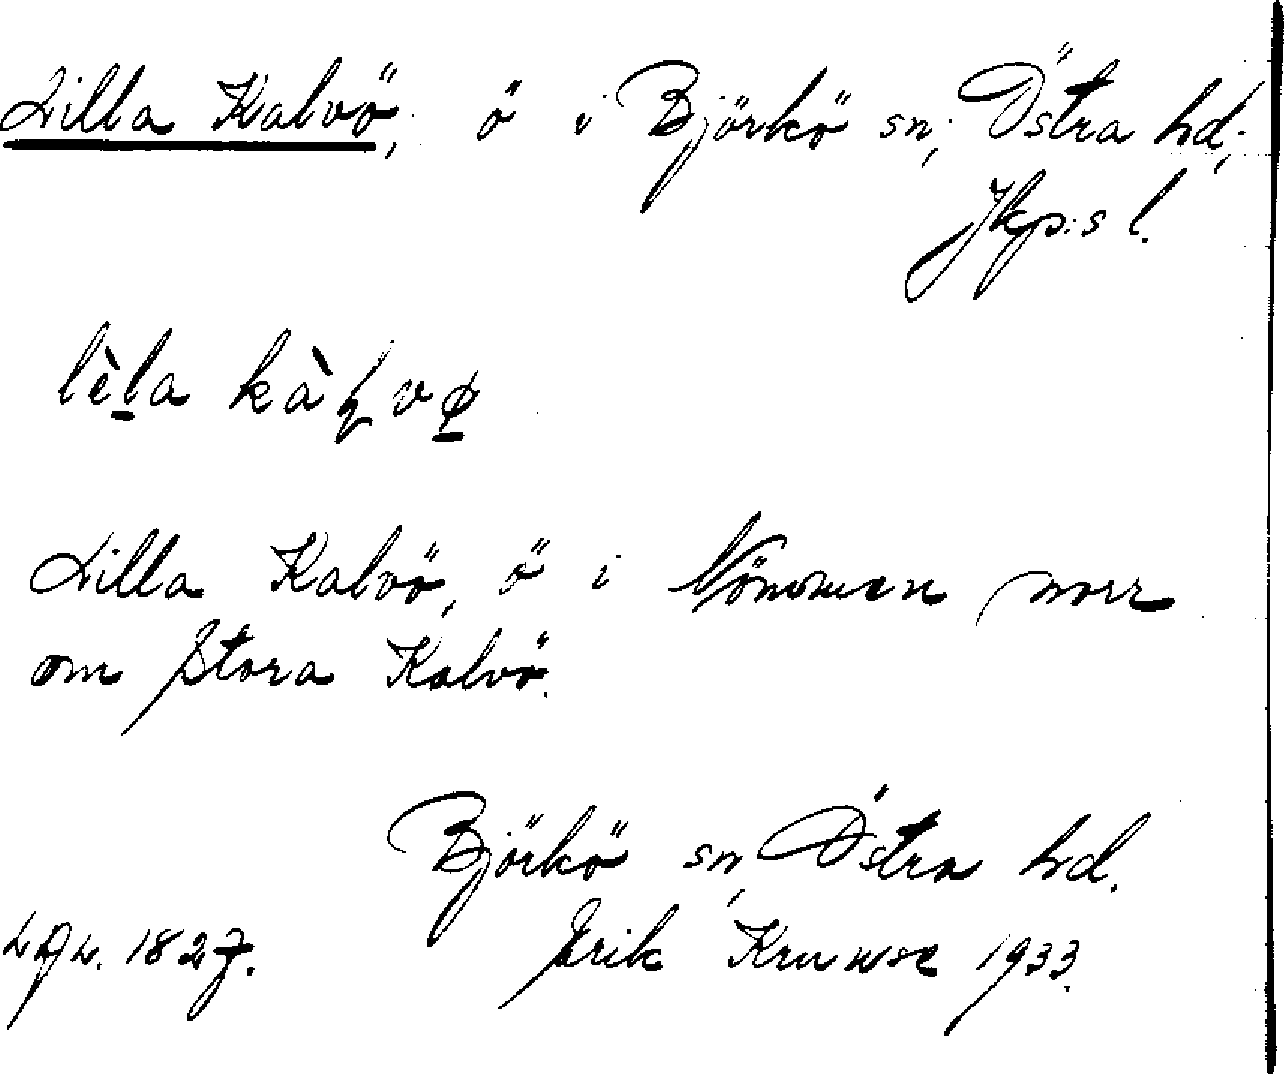 Lilla Kalvö, ö i Björkö sn, Östra hd,
Jkp:s l.
lèla kàɽvø
Lilla Kalvö, ö i Nömmen norr
om Stora Kalvö.
Björkö sn, Östra hd.
1827. Erik 1933.